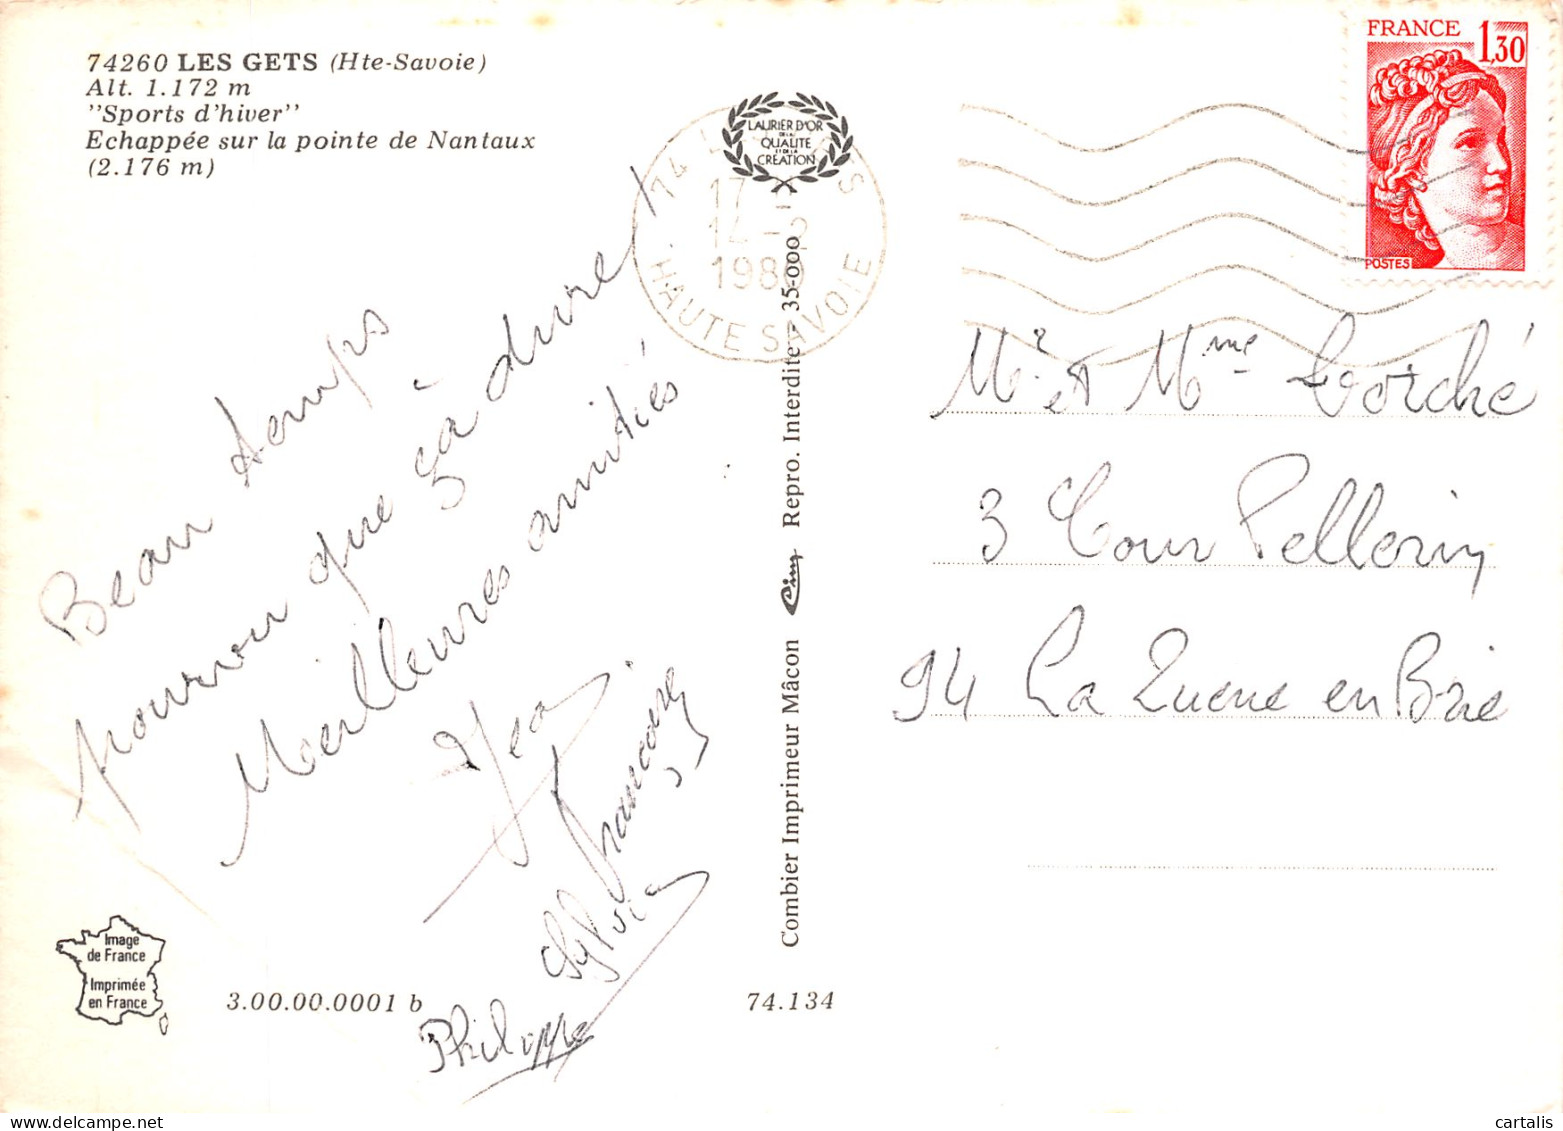 74260 LES GETS (Hte-Savoie)
Alt. 1.172 m
"Sports d'hiver"
Echappée sur la pointe de Nantaux
(2.176 m)
LAURIER D'OR
DE LA
QUALITE
ET DE LA
CREATION
74
S
17
1980
HAUTE SAVOIE
FRANCE 1,30
POSTES
Beau temps
pourvu que çà dure !
Meilleures amitiés
Jean
Francoise
Sylvia
Philippe
Mr et Mme
3 Cour Pellerin
94 La Queue en Brie
Combier Imprimeur Mâcon Cim Repro. Interdite - 35-000
Image
de France
Imprimée
en France
3.00.00.0001 b
74.134
cartalis